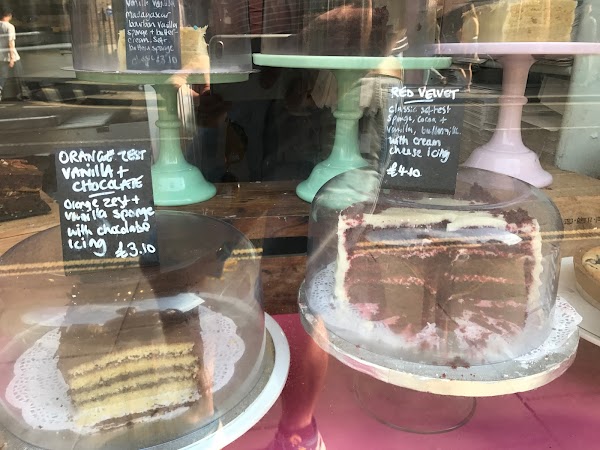 Vanilla
Madagascar
bourbon vanilla
sponge + butter-
cream. Soft
sponge
ORANGE ZEST
VANILLA +
CHOCOLATE
Orange zest +
vanilla sponge
with chocolate
icing £3.10
RED VELVET
classic soft-est
sponge, cocoa +
vanilla, buttermilk.
with cream
cheese icing
£4.10